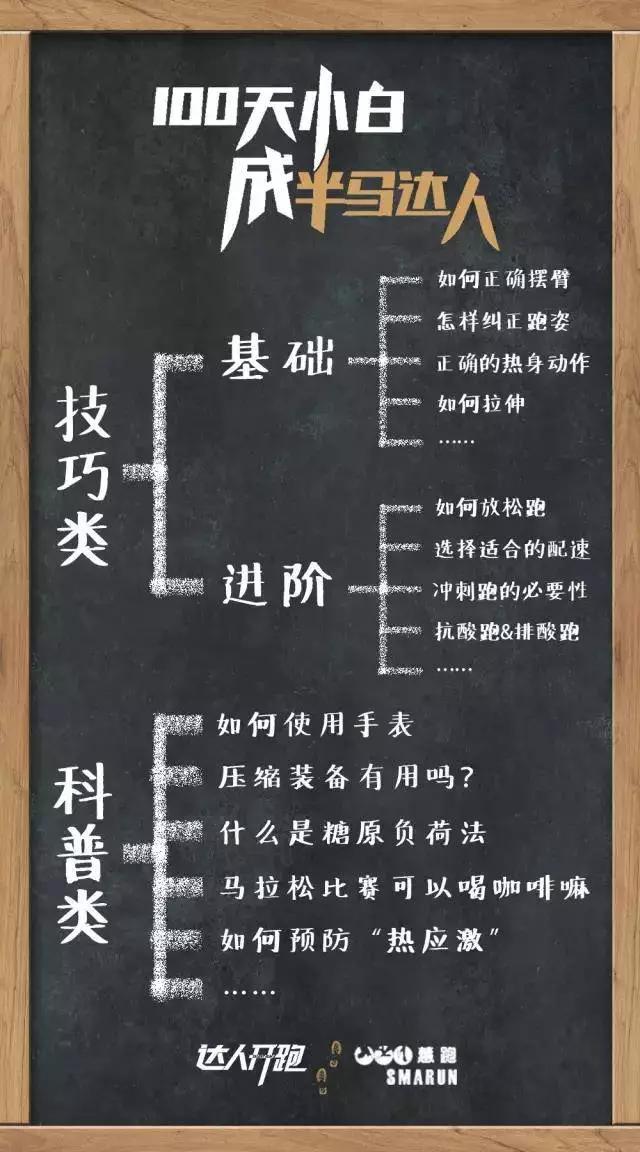 100天小白
成半马达人
技巧类
基础
如何正确摆臂
怎样纠正跑姿
正确的热身动作
如何拉伸
……
进阶
如何放松跑
选择适合的配速
冲刺跑的必要性
抗酸跑&排酸跑
……
科普类
如何使用手表
压缩装备有用吗?
什么是糖原负荷法
马拉松比赛可以喝咖啡嘛
如何预防“热应激”
……
达人开跑
慈跑
SMARUN